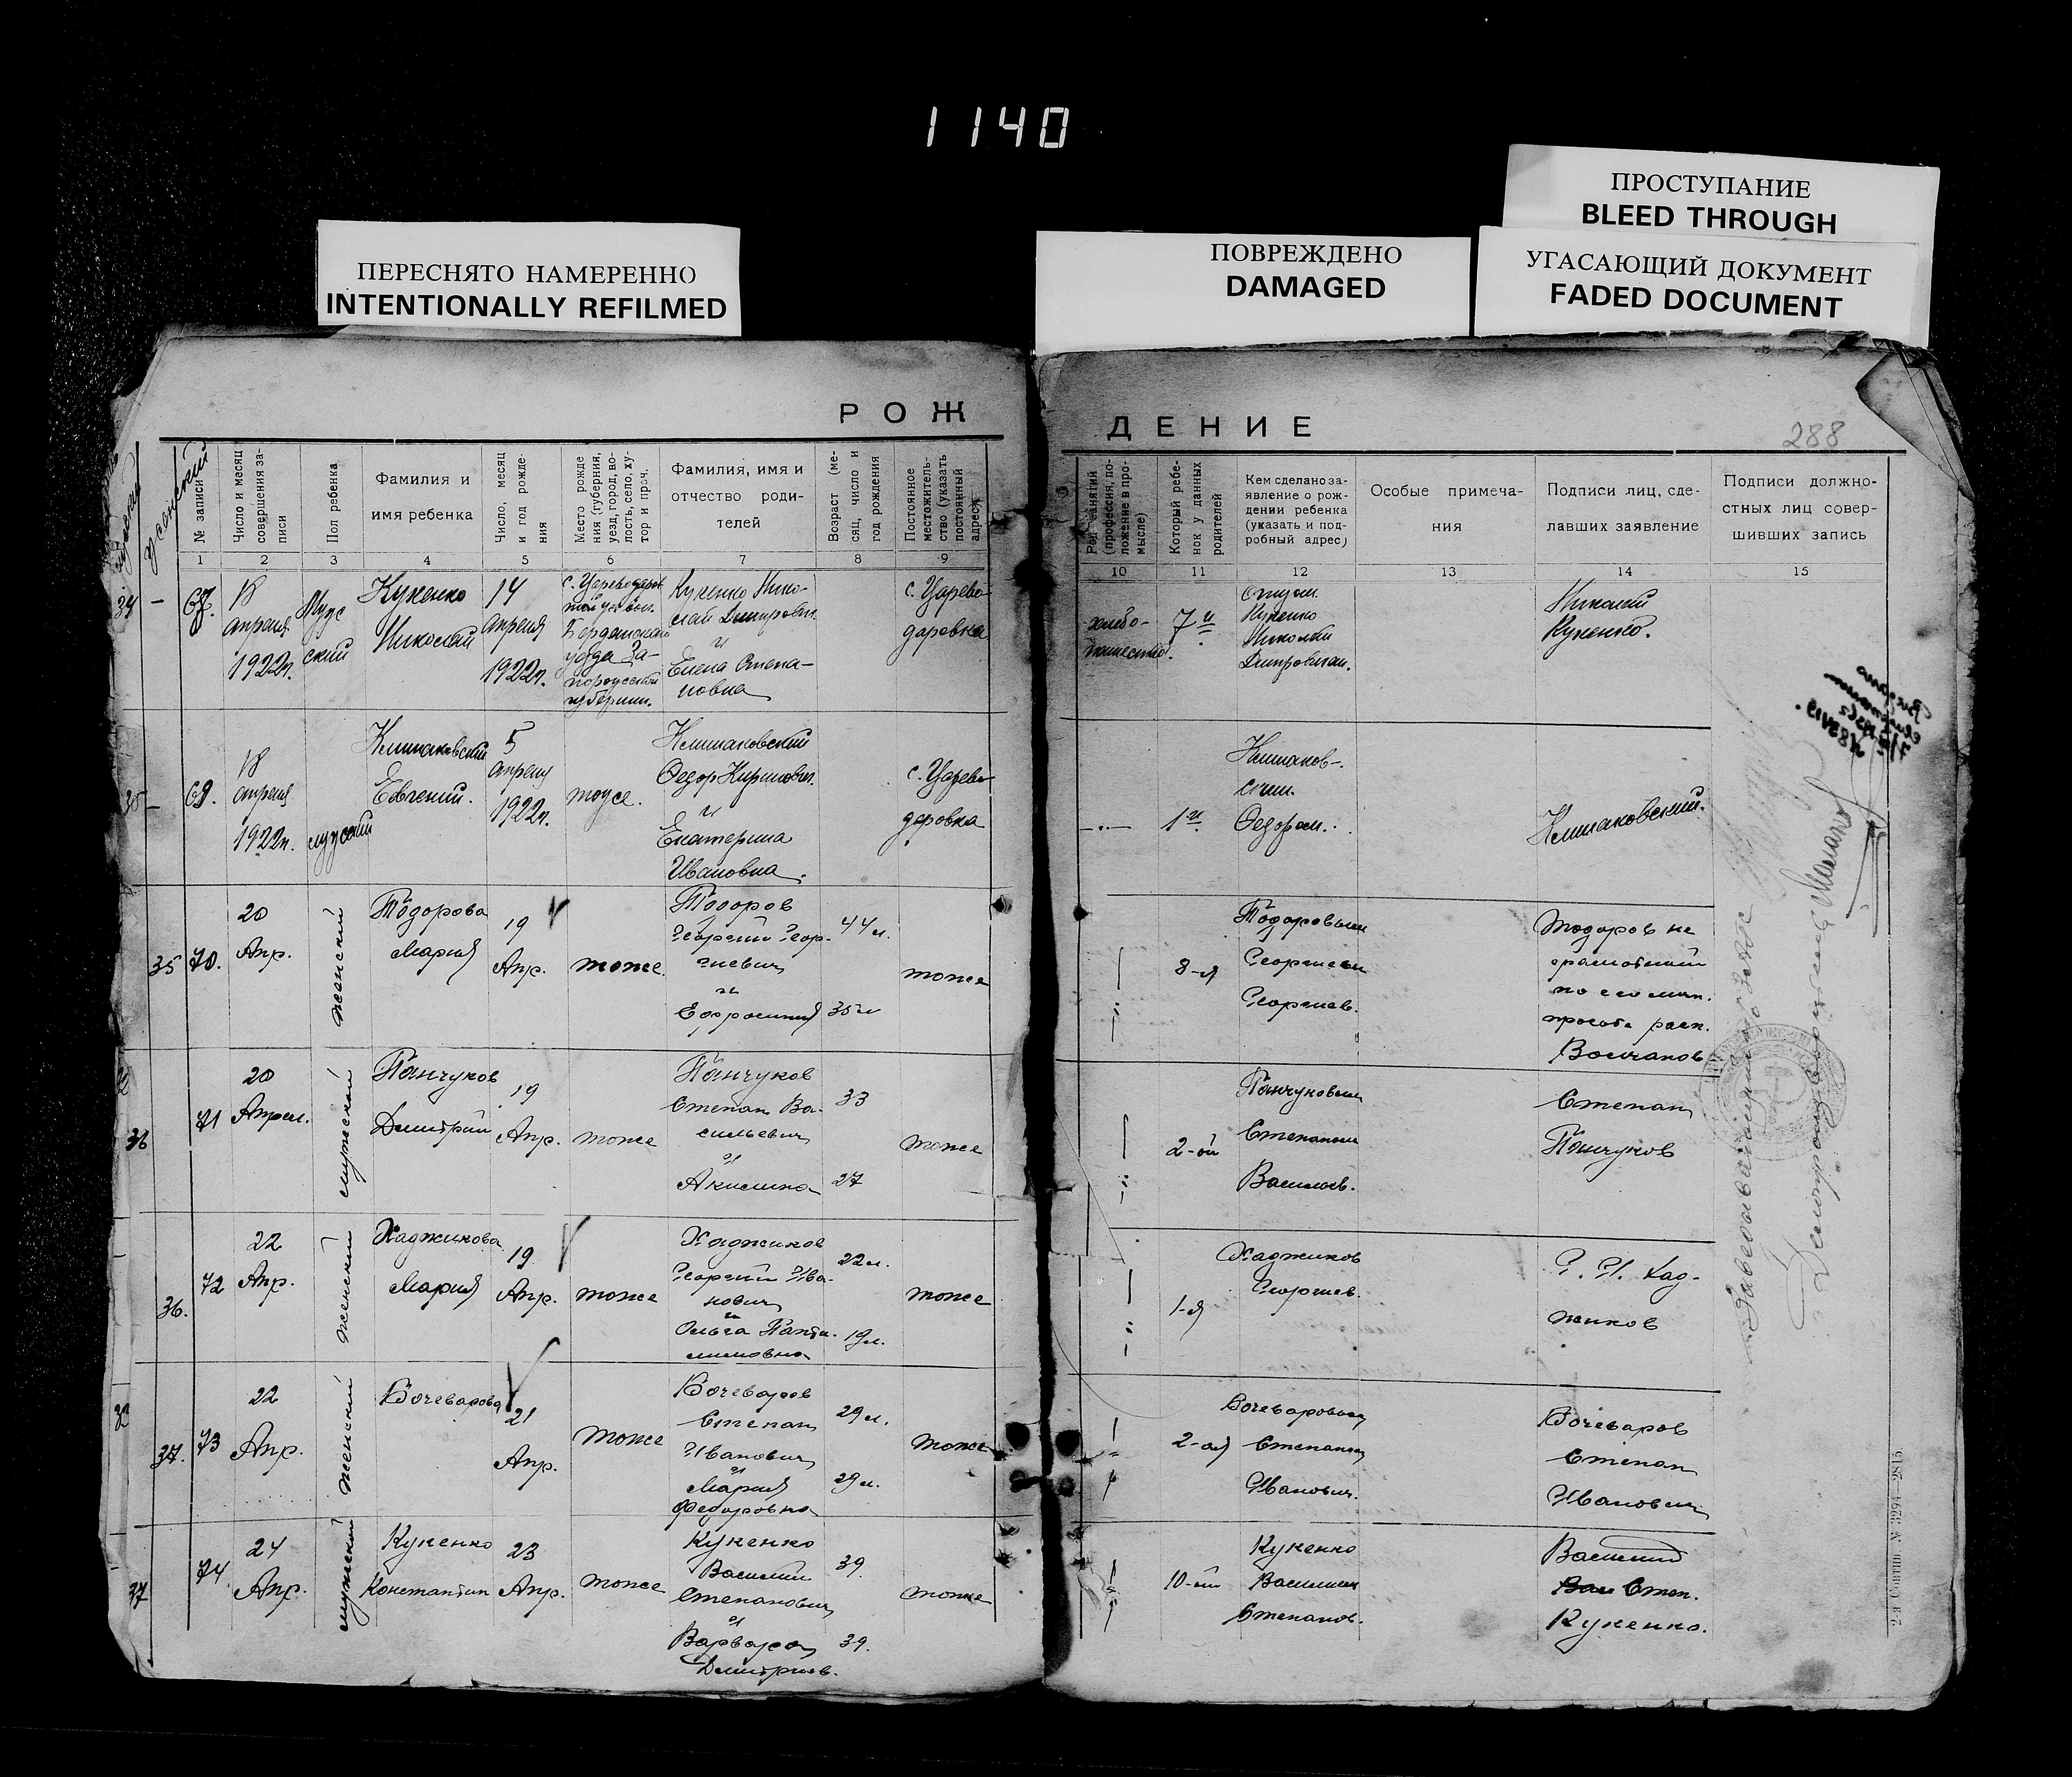 1140
ПРОСТУПАНИЕ
BLEED THROUGH
ПОВРЕЖДЕНО
DAMAGED
УГАСАЮЩИЙ ДОКУМЕНТ
FADED DOCUMENT
ПЕРЕСНЯТО НАМЕРЕННО
INTENTIONALLY REFILMED
РОЖ
ДЕНИЕ
288
№ записи
Число и месяц
совершения за-
писи
Пол ребенка
Фамилия и
имя ребенка
Число, месяц
и год рожде-
ния
Место рожде
ния (губерния,
уезд, город, во-
лость, село, ху-
тор и проч.
Фамилия, имя и
отчество роди-
телей
Возраст (ме-
сяц, число и
год рождения
Постоянное
местожитель-
ство (указать
постоянный
адрес)
Род занятий
(профессия, по-
ложение в про-
мысле)
Который ребе-
нок у данных
родителей
Кем сделано за-
явление о рож-
дении ребенка
(указать и под-
робный адрес)
Особые примеча-
ния
Подписи лиц, сде-
лавших заявление
Подписи должно-
стных лиц совер-
шивших запись
1 2 3 4 5 6 7 8 9 10 11 12 13 14 15
34
18
апреля
1922г.
Муж
ский
Кукенко
Николай
14
апреля
1922г.
Бердянского
уезда За-
губернии.
Кукенко Нико-
лай Дмитрович
и
Елена Степа-
новна
с. Царево-
даровка
хлебо-
7й
Кукенко
Николай
Николай
Кукенко.
69.
18
апреля
1922г.
мужский
Климаковский
Евгений.
5
апреля
1922г.
тоже.
Климаковский
Федор Кирилович.
и
Екатерина
Ивановна.
с. Царево
даровка
1й
Климаков-
ским
Федором.
Климаковский.
35 70.
20
Апр.
женский
Тодорова
Мария
19
Апр.
тоже.
Тодоров
Георгий Геор-
гиевич
и
Ефросиния
44 л.
35 л
тоже
8-я
Тодоровым
Георгием
Георгиев.
Тодоров не
грамотный
по его личн.
просьбе расп.
Волчанов
36
71
20
Апрел.
мужской
Панчуков
Дмитрий
19
Апр.
тоже
Панчуков
Степан Ва-
сильевич
и
Акилина
33
27
тоже
2-ой
Панчуковым
Степаном
Васильев.
Степан
Панчуков
36.
72
22
Апр.
женский
Хаджикова
Мария
19
Апр.
тоже
Хаджиков
Георгий Ива-
нович
и
Ольга Панте-
лимовна
22 л.
19 л.
тоже
1-я
Хаджиков
Георгиев.
Г. И. Хад-
жиков
37.
73
22
Апр.
женский
Бочеварова
21
Апр.
тоже
Бочеваров
Степан
Иванович
и
Мария
Федоровна
29 л.
29 л.
тоже
2-ая
Бочеваровым
Степаном
Иванович.
Бочеваров
Степан
Иванович
37
74
24
Апр.
мужской
Кукенко
Константин
23
Апр.
тоже
Кукенко
Василий
Степанович
и
Варвара
Дмитриев.
39.
39.
тоже
10-ый
Кукенко
Василием
Степанов.
Василий
Степ.
Кукенко.
2-я Совтип. № 3294—2815.